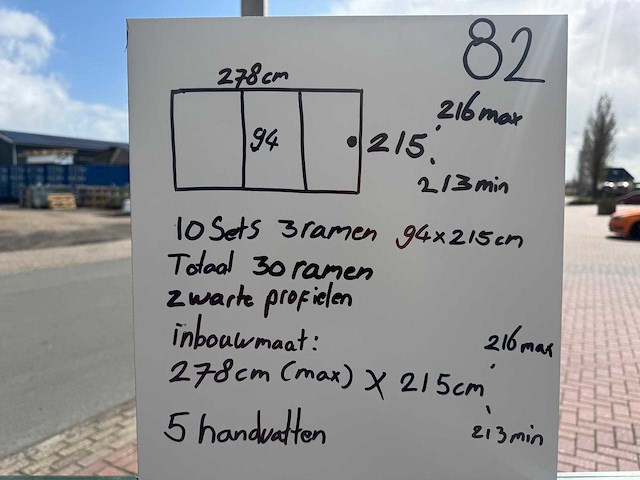 82
278cm
216 max
94
215
213 min
10 Sets 3 ramen 94x215cm
Totaal 30 ramen
zwarte profielen
inbouwmaat:
216 max
278cm (max) X 215cm
213 min
5 handvatten